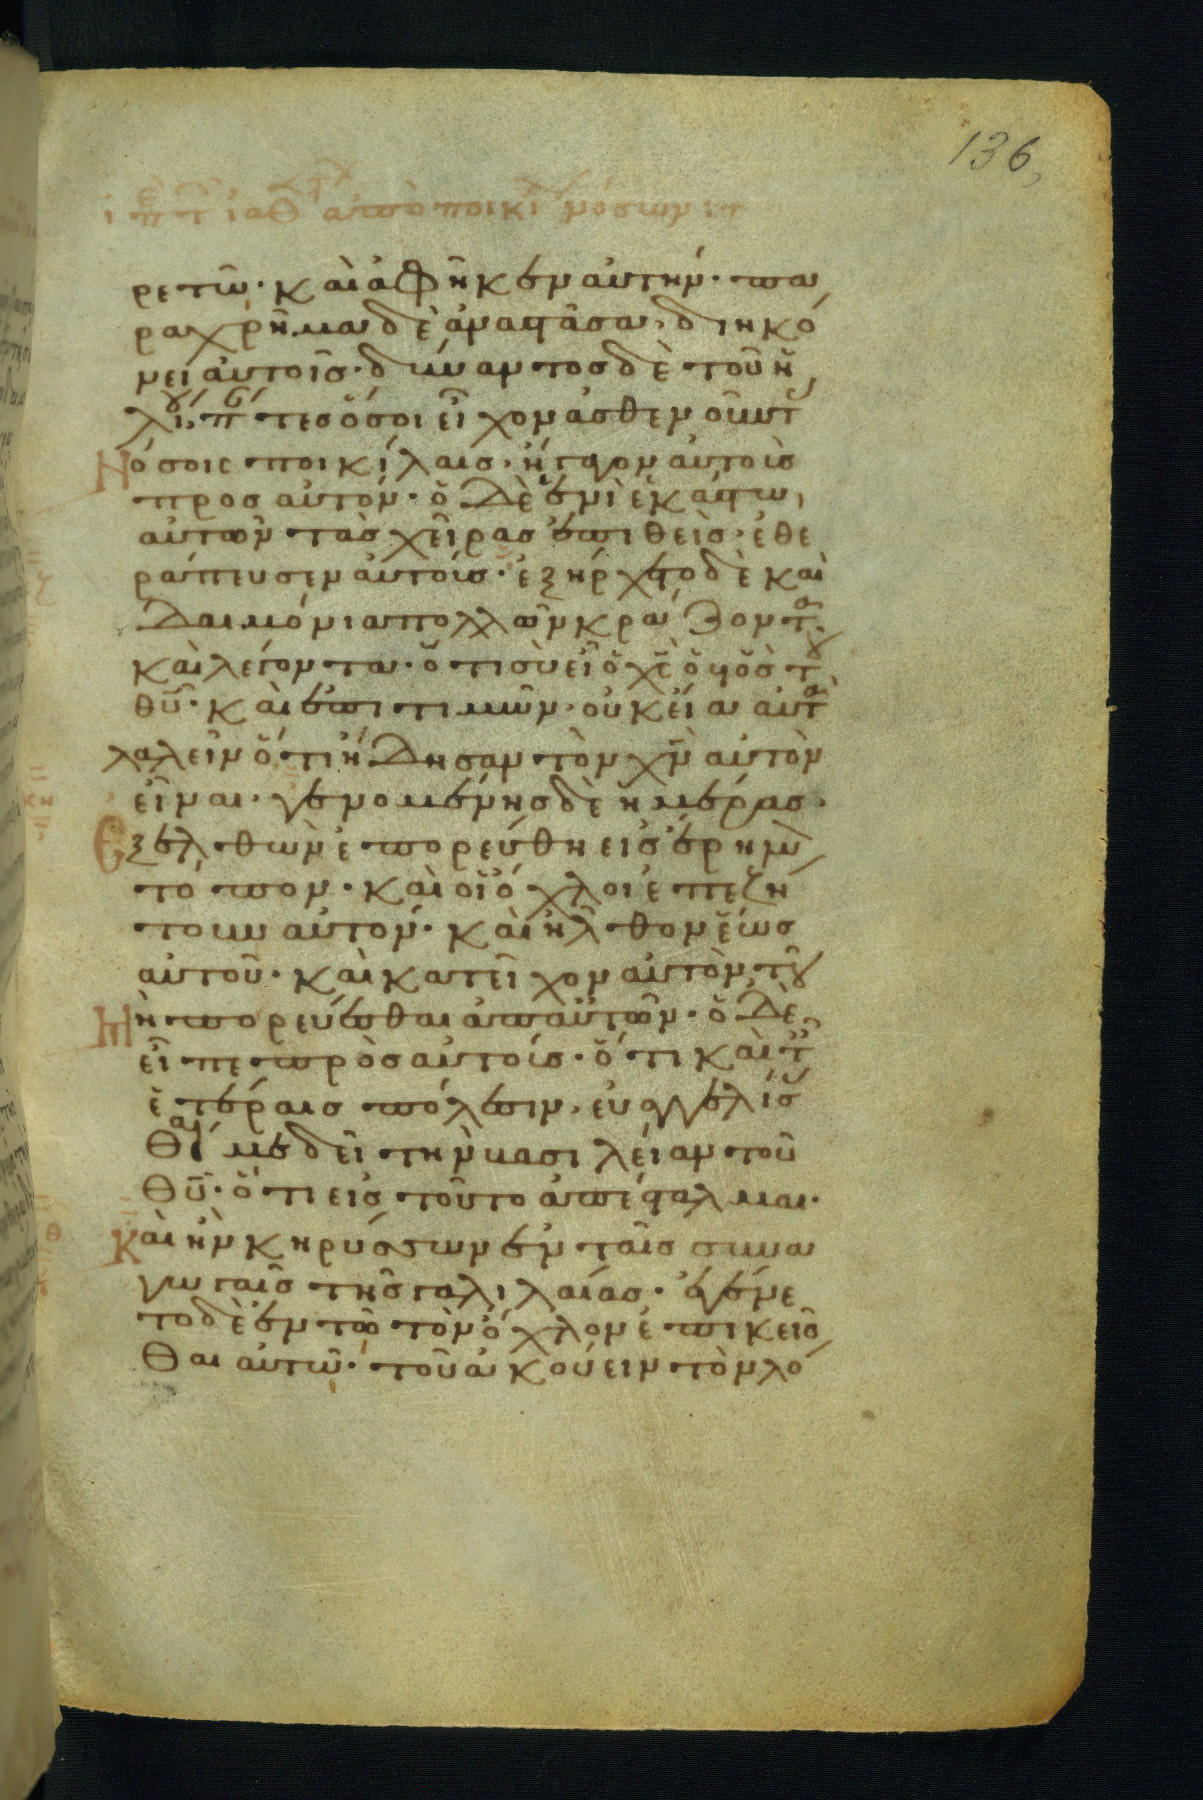 136
ρετῶ· καὶ ἀφῆκεν αὐτήν· πα
ραχρῆμα δὲ ἀναστᾶσα, διηκό
νει αὐτοῖς· δύναντος δὲ τοῦ ἡ
λίου, πάντες ὅσοι εἶχον ἀσθενοῦντ
Νόσοις ποικίλαις· ἤγαγον αὐτοὺς
προς αὐτόν· ὁ Δὲ ἑνὶ ἑκάστω,
αὐτῶν τὰς χεῖρας ἐπιθεὶς· ἐθε
ράπευσεν αὐτούς· ἐξήρχετο δὲ καὶ
Δαιμόνια πολλῶν κράζοντα·
καὶ λέγοντα· ὅτι σὺ εἶ ὁ χς ὁ υἱὸς τοῦ
θῦ· καὶ ἐπιτιμῶν· οὐκ εἴα αὐτὰ
λαλεῖν ὅτι ἤΔησαν τὸν χν αὐτὸν
εἶναι· γενομένης δὲ ἡμέρας·
Ἐξελθὼν ἐπορεύθη εἰς ἔρημον
τόπον· καὶ οἱ ὄχλοι ἐπεζή
τουν αὐτόν· καὶ ἦλθον ἕως
αὐτοῦ· καὶ κατεῖχον αὐτὸν τοῦ
Μὴ πορεύεσθαι ἀπ αὐτῶν· ὁ Δὲ
εἶπε πρὸς αὐτούς· ὅτι καὶ τ
ἑτέραις πόλεσιν, εὐαγγελίσ
Θαί με δεῖ τὴν βασιλείαν τοῦ
Θῦ· ὅτι εἰς τοῦτο ἀπέσταλμαι·
Καὶ ἦν κηρύσσων ἐν ταῖς συνα
γωγαῖς τῆς γαλιλαίας· ἐγένε
το δὲ ἐν τῶ τὸν ὄχλον ἐπικεῖσ
Θαι αὐτῶ· τοῦ ἀκούειν τὸν λό